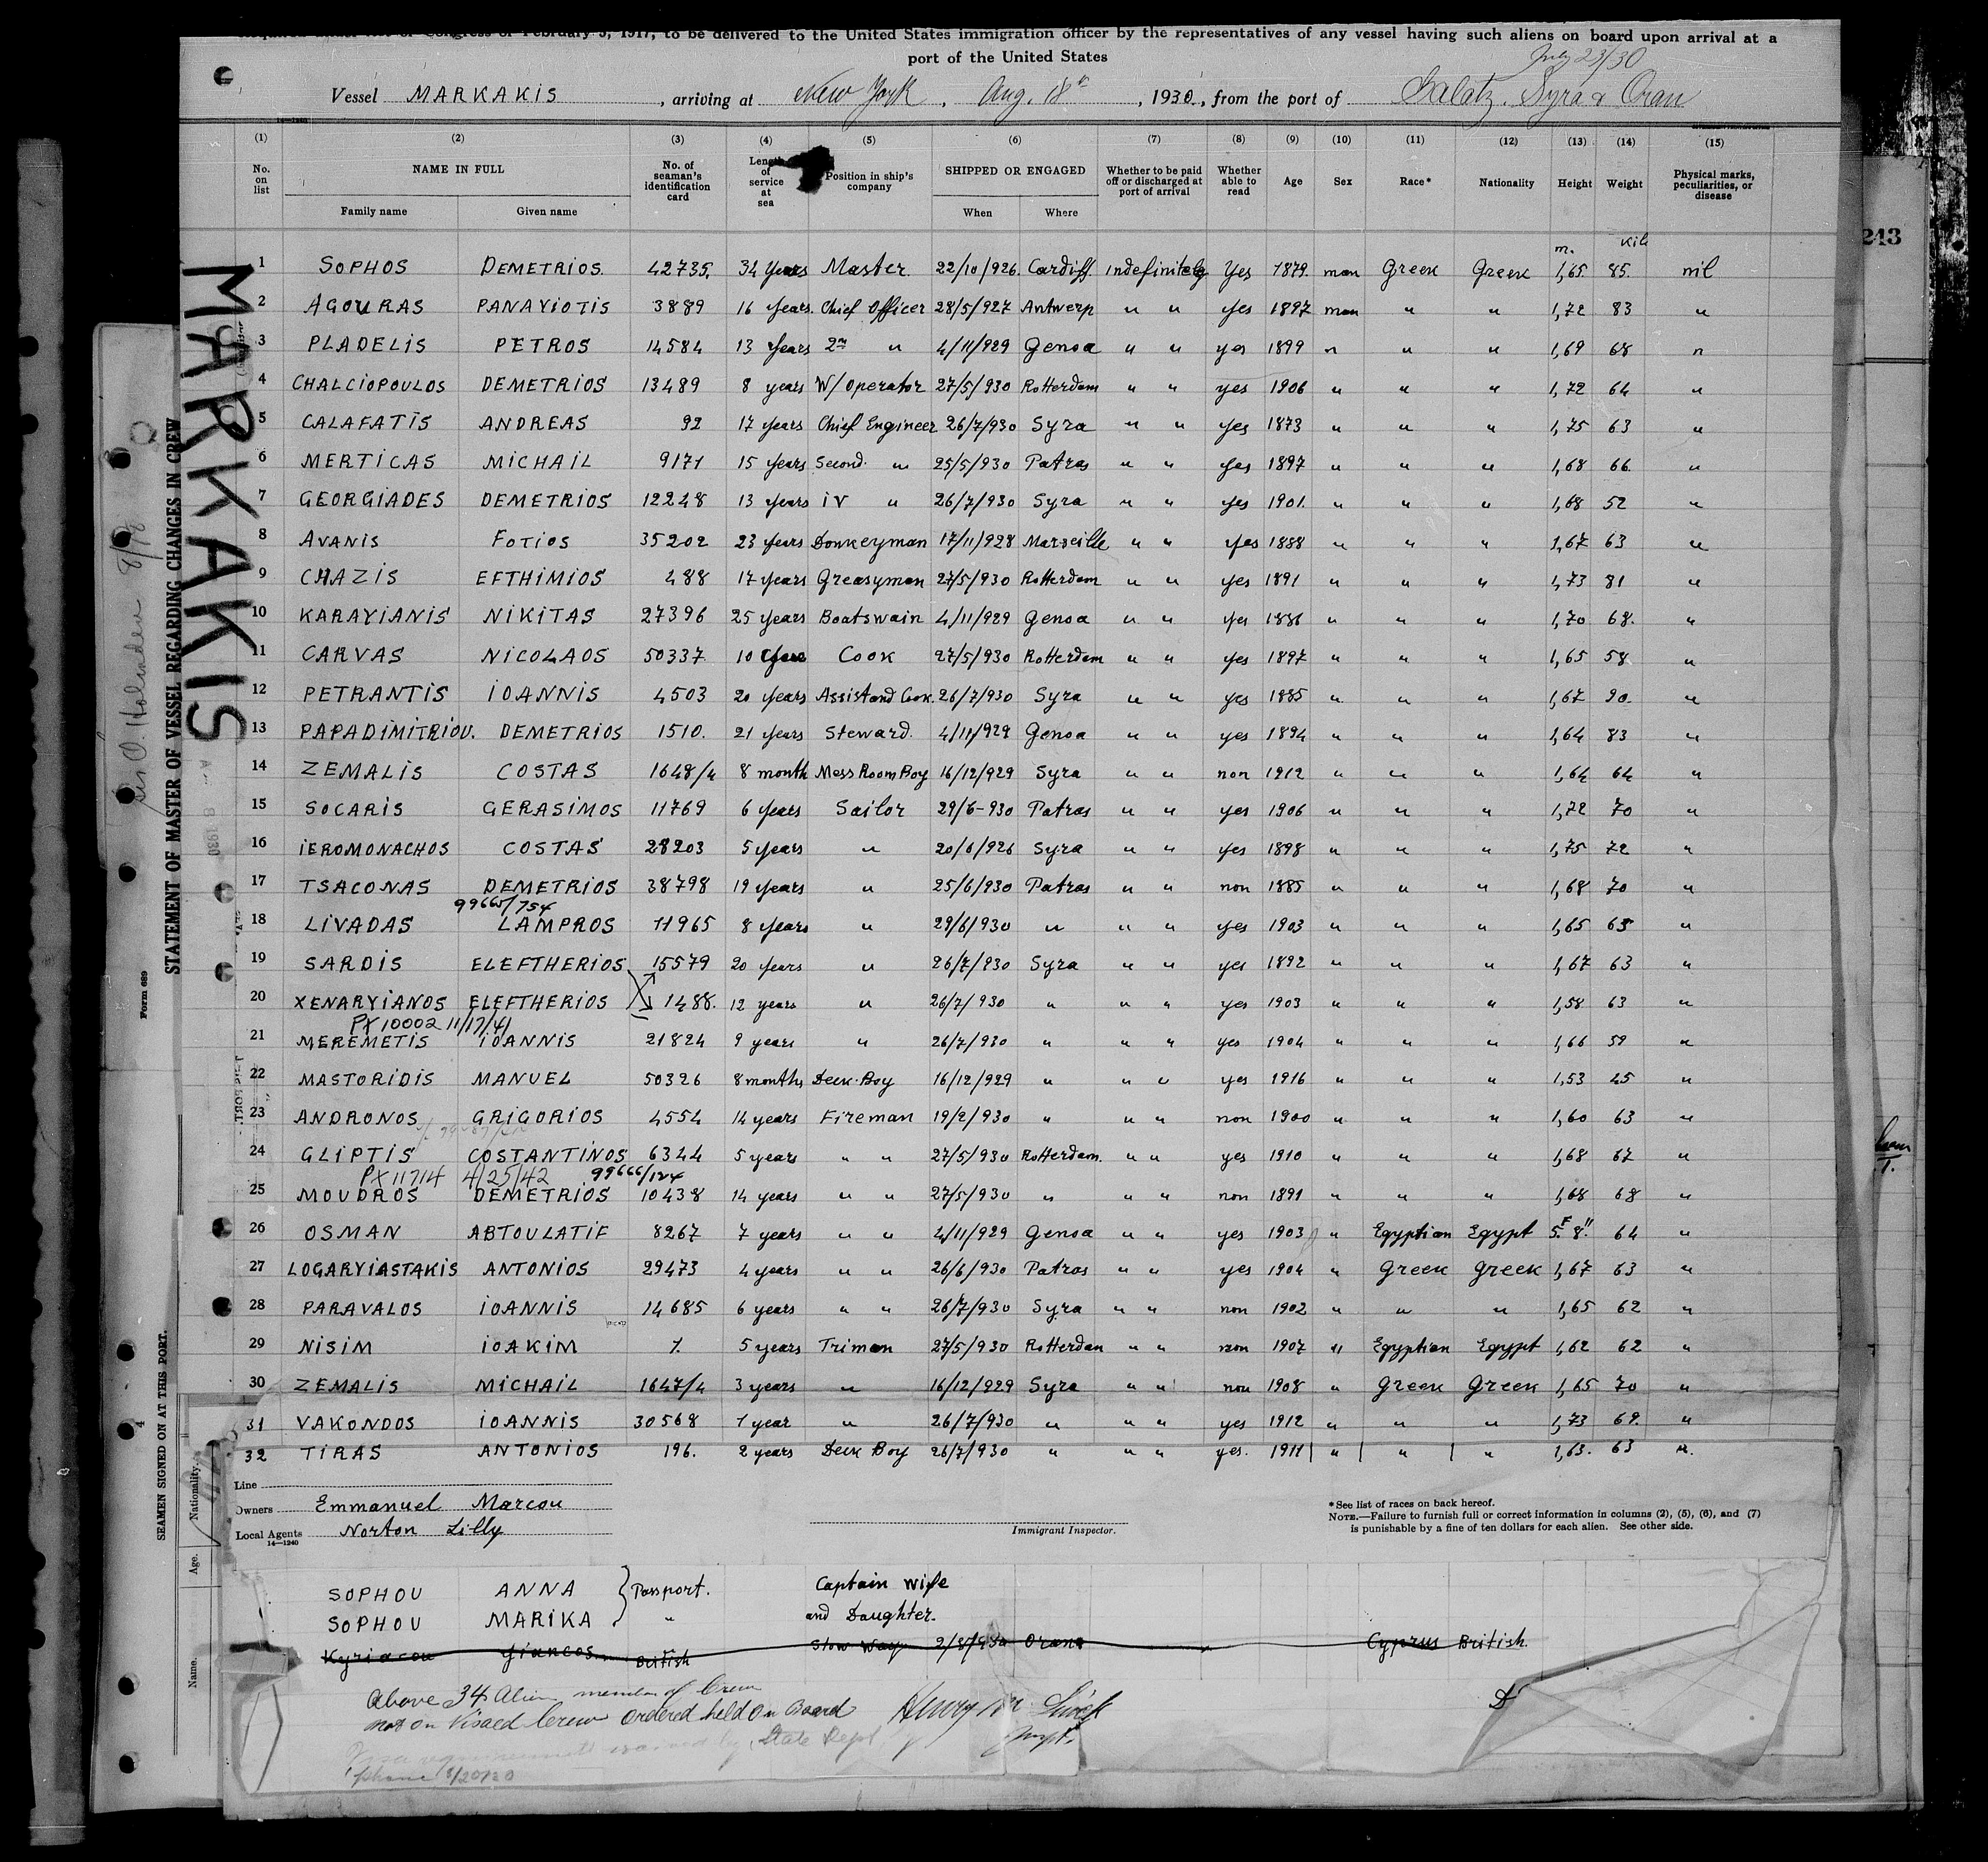 Required under Act of Congress of February 5, 1917, to be delivered to the United States immigration officer by the representatives of any vessel having such aliens on board upon arrival at a
port of the United States
July 23/30
Vessel MARKAKIS, arriving at New York, Aug. 18th, 1930, from the port of Galatz. Syra & Oran
(1) (2) (3) (4) (5) (6) (7) (8) (9) (10) (11) (12) (13) (14) (15)
No. on list NAME IN FULL Family name Given name No. of seaman's identification card Length of service at sea Position in ship's company SHIPPED OR ENGAGED When Where Whether to be paid off or discharged at port of arrival Whether able to read Age Sex Race* Nationality Height Weight Physical marks, peculiarities, or disease
m. Kil
1 SOPHOS DEMETRIOS. 42735. 34 years Master 22/10/926. Cardiff. indefinitely Yes 1879. man Greek Greek 1,65. 85. nil
2 AGOURAS PANAYIOTIS 3889 16 years. Chief Officer 28/5/927 Antwerp " " yes 1897 man " " 1,72 83 "
3 PLADELIS PETROS 14584 13 years 2nd " 4/11/929 Genoa " " yes 1899 " " " 1,69 68 "
4 CHALCIOPOULOS DEMETRIOS 13489 8 years W/operator 27/5/930 Rotterdam " " yes 1906 " " " 1,72 64 "
5 CALAFATIS ANDREAS 92 17 years Chief Engineer 26/7/930 Syra " " yes 1873 " " " 1,75 63 "
6 MERTICAS MICHAIL 9171 15 years Second. " 25/5/930 Patras " " yes 1897 " " " 1,68 66 "
7 GEORGIADES DEMETRIOS 12248 13 years IV " 26/7/930 Syra " " yes 1901. " " " 1,68 52 "
8 AVANIS FOTIOS 35202 23 years Donkeyman 17/11/928 Marseille " " yes 1888 " " " 1,67 63 "
9 CHAZIS EFTHIMIOS 488 17 years Greasyman 27/5/930 Rotterdam " " yes 1891 " " " 1,73 81 "
10 KARAYIANIS NIKITAS 27396 25 years Boatswain 4/11/929 Genoa " " yes 1886 " " " 1,70 68. "
11 CARVAS NICOLAOS 50337 10 years Cook 27/5/930 Rotterdam " " yes 1897 " " " 1,65 58 "
12 PETRANTIS IOANNIS 4503 20 years Assistand Cook. 26/7/930 Syra " " yes 1885 " " " 1,67 90. "
13 PAPADIMITRIOU. DEMETRIOS 1510. 21 years Steward. 4/11/929 Genoa " " yes 1894 " " " 1,64 83 "
14 ZEMALIS COSTAS 1648/4 8 month Mess Room Boy 16/12/929 Syra " " non 1912 " " " 1,64 64 "
15 SOCARIS GERASIMOS 11769 6 years Sailor 29/6-930 Patras " " yes 1906 " " " 1,72 70 "
16 IEROMONACHOS COSTAS 28203 5 years " 20/6/926 Syra " " yes 1898 " " " 1,75 72 "
17 TSACONAS DEMETRIOS 38798 19 years " 25/6/930 Patras " " non 1885 " " " 1,68 70 "
99665/754
18 LIVADAS LAMPROS 11965 8 years " 29/6/930 " " " yes 1903 " " " 1,65 65 "
19 SARDIS ELEFTHERIOS 15579 20 years " 26/7/930 Syra " " yes 1892 " " " 1,67 63 "
20 XENARYIANOS ELEFTHERIOS 1488. 12 years " 26/7/930 " " " yes 1903 " " " 1,58 63 "
PX 10002 11/17/41
21 MEREMETIS IOANNIS 21824 9 years " 26/7/930 " " " yes 1904 " " " 1,66 59 "
22 MASTORIDIS MANUEL 50326 8 months Deck-Boy 16/12/929 " " " yes 1916 " " " 1,53 45 "
23 ANDRONOS GRIGORIOS 4554 14 years Fireman 19/2/930 " " " non 1900 " " " 1,60 63 "
24 GLIPTIS COSTANTINOS 6344 5 years " " 27/5/930 Rotterdam. " " yes 1910 " " " 1,68 67 "
PX 11714 4/25/42 99666/124
25 MOUDROS DEMETRIOS 10438 14 years " " 27/5/930 " " " non 1891 " " " 1,68 68 "
26 OSMAN ABTOULATIF 8267 7 years " " 4/11/929 Genoa " " yes 1903 " Egyptian Egypt 5F 8" 64 "
27 LOGARYIASTAKIS ANTONIOS 29473 4 years " " 26/6/930 Patras " " yes 1904 " Greek Greek 1,67 63 "
28 PARAVALOS IOANNIS 14685 6 years " " 26/7/930 Syra " " non 1902 " " " 1,65 62 "
29 NISIM IOAKIM 7. 5 years Triman 27/5/930 Rotterdam " " non 1907 " Egyptian Egypt 1,62 62 "
30 ZEMALIS MICHAIL 1647/4 3 years " 16/12/929 Syra " " non 1908 " Greek Greek 1,65 70 "
31 VAKONDOS IOANNIS 30568 1 year " 26/7/930 " " " yes 1912 " " " 1,73 69. "
32 TIRAS ANTONIOS 196. 2 years Deck Boy 26/7/930 " " " yes. 1911 " " " 1,63. 63 "
Line
Owners Emmanuel Marcou
Local Agents Norton Lilly
14—1240
Immigrant Inspector.
*See list of races on back hereof.
NOTE.—Failure to furnish full or correct information in columns (2), (5), (6), and (7)
is punishable by a fine of ten dollars for each alien. See other side.
SOPHOU ANNA } Passport. Captain wife
SOPHOU MARIKA " and Daughter.
Kyriacou Giancos British Stow Way 2/8/930 Oran Cyprus British.
Above 34 Alien member of Crew
not on Visaed Crew ordered held on Board
State Dept
phone 8/20/30
MARKAKIS
STATEMENT OF MASTER OF VESSEL REGARDING CHANGES IN CREW
Form 689
SEAMEN SIGNED ON AT THIS PORT.
4
Nationality.
Age.
Name.
243